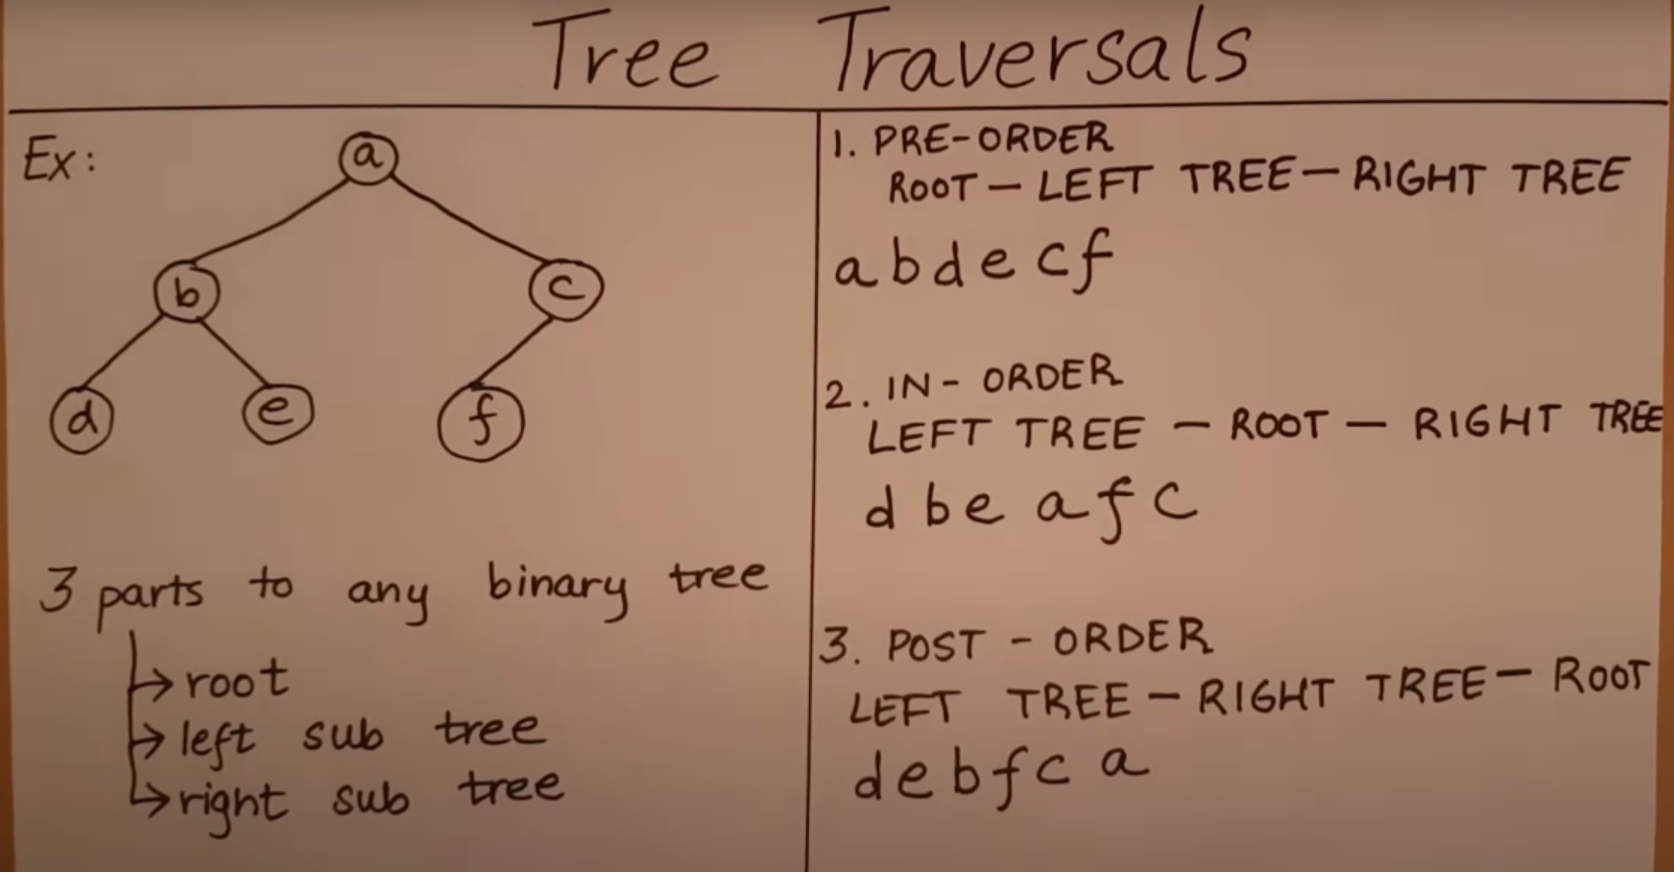 Tree Traversals
Ex:
a
b
c
d
e
f
3 parts to any binary tree
root
left sub tree
right sub tree
1. PRE-ORDER
ROOT — LEFT TREE — RIGHT TREE
a b d e c f
2. IN - ORDER
LEFT TREE — ROOT — RIGHT TREE
d b e a f c
3. POST - ORDER
LEFT TREE — RIGHT TREE — ROOT
d e b f c a